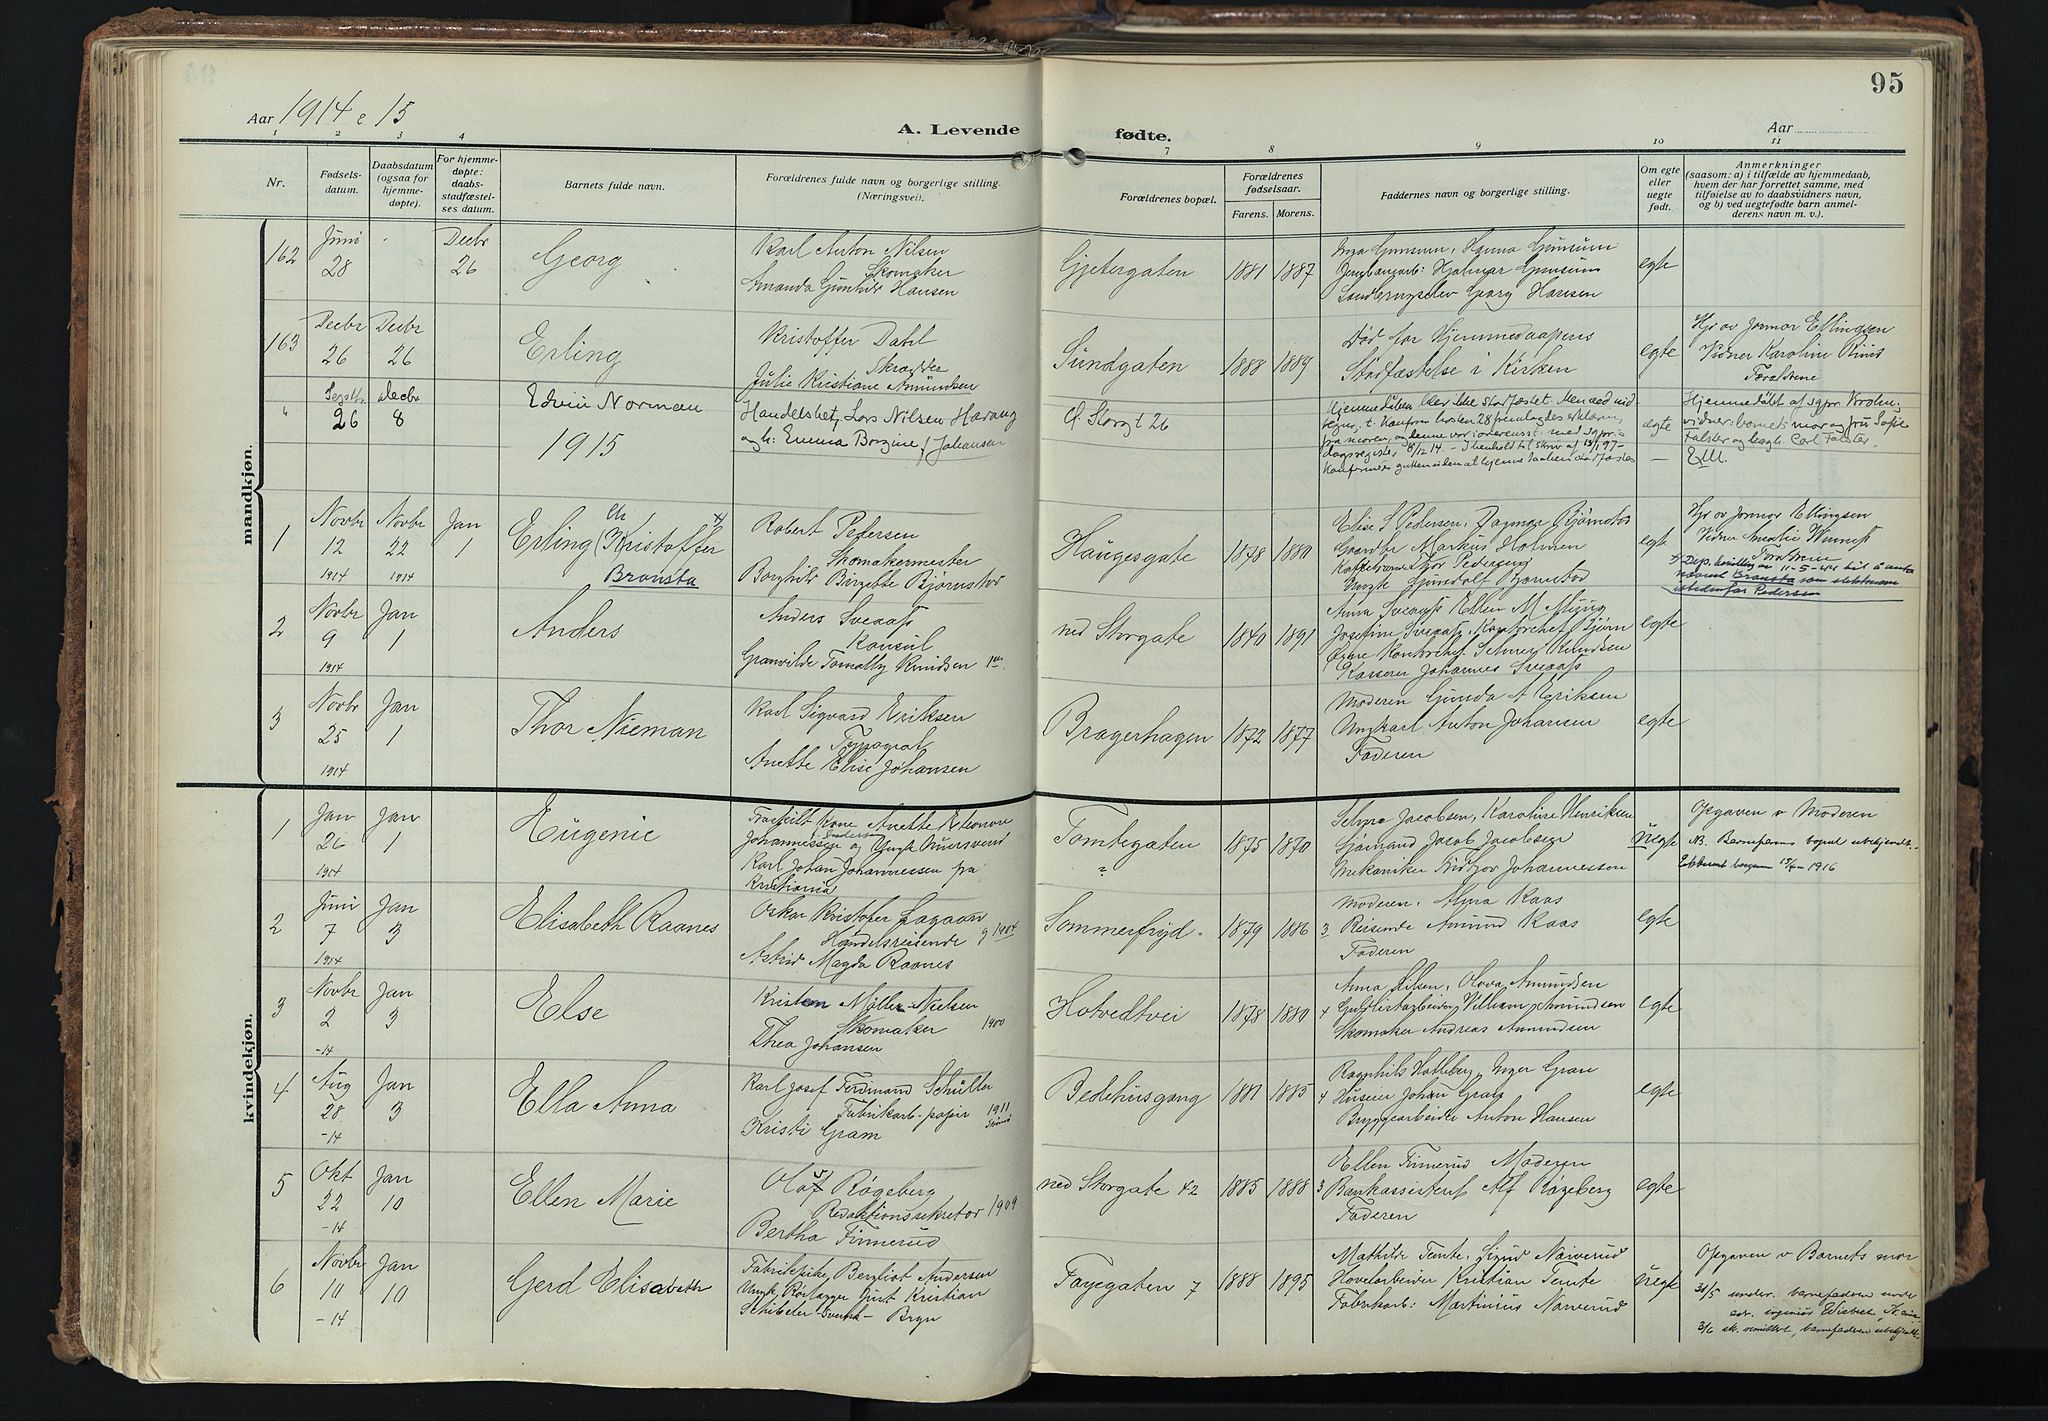 95
Aar 1914 & 15
A. Levende
fødte.
Aar
1 2 3 4
7 8 9 10 11
Nr.
Fødsels-
datum.
Daabsdatum
(ogsaa for
hjemme-
døpte).
For hjemme-
døpte:
daabs-
stadfæstel-
ses datum.
Barnets fulde navn.
Forældrenes fulde navn og borgerlige stilling.
(Næringsvei).
Forældrenes bopæl.
Forældrenes
fødselsaar.
Farens. Morens.
Faddernes navn og borgerlige stilling.
Om egte
eller
uegte
født.
Anmerkninger
(saasom: a) i tilfælde av hjemmedaab,
hvem der har forrettet samme, med
tilføielse av to daabsvidners navn,
og b) ved uegtefødte barn anmel-
derens navn m. v.).
mandkjøn.
162
Juni
28
Decbr
26
Georg
Karl Anton Nilsen
Skomaker
Amanda Gunhild Hansen
Gjetergaten
1881 1887
Georg Hansen
egte
163
Decbr
26
Decbr
26
Erling
Kristoffer Dahl
Skrædder
Julie Kristiane Amundsen
Sundgaten
1888 1889
Død før Hjemmedaapens
Stadfæstelse i Kirken
egte
Hjd av Jormor Ellingsen
Vidner Karoline
Forældrene
"
Septbr.
26
Decbr
8
Edvin Norman
1915
Handelsbet. Lars Nilsen Harang
og h. Emma Borgine f. Johansen
Ø Storgt 26
Hjemmedåben blev ikke stadfæstet.
egte
Hjemmedøbt af sgpr Krohn;
vidner: barnets mor og fru Sofie
Falster og Carl Falster.
1
Novbr
12
1914
Novbr
22
1914
Jan
1
Erling (Kristoffer
Bransta
Robert Pedersen
Skomakermester
Borghild Birgette Bjørnstad
Haugesgate
1878 1880
Elise S Pedersen, Dagmar Bjørnstad
Gaardbr Markus Holmen
Thor Pedersen
Ungk Gundolf Bjørnstad
egte
Hjd av Jormor Ellingsen
Vidner Amalie
Forældrene
11-5-44
Bransta som slektsnavn
istedenfor Pedersen
2
Novbr
9
1914
Jan
1
Anders
Anders Sveaas
Konsul
Granvilde Tomalty Knudsen
ned Storgate
1840 1891
Anna Sveaas Ellen M
Josefine Sveaas, Kontorchef Bjørn
Knudsen
Kasserer Johannes Sveaas
egte
3
Novbr
25
1914
Jan
1
Thor Nieman
Karl Sigvard Eriksen
Typograf
Anette Elise Johansen
Bragerhagen
1872 1877
Moderen Gunda A Eriksen
Ungkarl Anton Johansen
Faderen
egte
kvindekjøn.
1
Jan
26
1914
Jan
1
Eugenie
Fraskilt Kone Anette Eleonore
Johannessen og Ungk Muersvend
Karl Johan Johannessen fra
Kristiania
Tomtegaten
"
1875 1870
Selma Jacobsen, Karoline Henriksen
Sjømand Jacob Jacobsen
Mekaniker Johannessen
uegte
Opgaven v Moderen
NB. Barnefarens bopæl ubekjendt.
1916
2
Juni
7
1914
Jan
3
Elisabeth Raanes
Oskar Kristofer Lagaon
Handelsreisende g 1904
Astrid Magda Raanes
Sommerfryd
1879 1886
Moderen, Alma Kaas
3 Reisende Amund Kaas
Faderen
egte
3
Novbr
2
-14
Jan
3
Else
Kristen Møller-Nielsen
Skomaker 1900
Thea Johansen
Hotvedtvei
1878 1880
Anna Olsen, Olava Amundsen
4 Guldlistarbeider William Amundsen
Skomaker Andreas Amundsen
egte
4
Aug
28
-14
Jan
3
Ella Anna
Karl Josef Ferdinand Schulter
Fabrikarb-papir 1911
Kristi Gram
Bedehusgang
1881 1885
Ragnhild Halleberg, Inger Gram
4 Huseier Johan Gram
Bryggearbeider Anton Hansen
egte
5
Okt
22
-14
Jan
10
Ellen Marie
Olav Røgeberg
Redaktionssekretær 1909
Bertha Finnerud
ned Storgate 42
1885 1888
Ellen Finnerud Moderen
3 Bankassistent Alf Røgeberg
Faderen
egte
6
Novbr
10
-14
Jan
10
Gerd Elisabeth
Fabrikpike Bergliot Andersen
Ungk, Rørlægger Just Kristian
Schibeler Svensk - Bryn
Fayegaten 7
1888 1895
Mathilde Temte, Sigrid Narverud
Hovelarbeider Kristian Temte
Fabrikarb: Martinius Narverud
uegte
Opgaven v Barnets mor
31/5 under. barnefaderen
3/6 barnefaderen